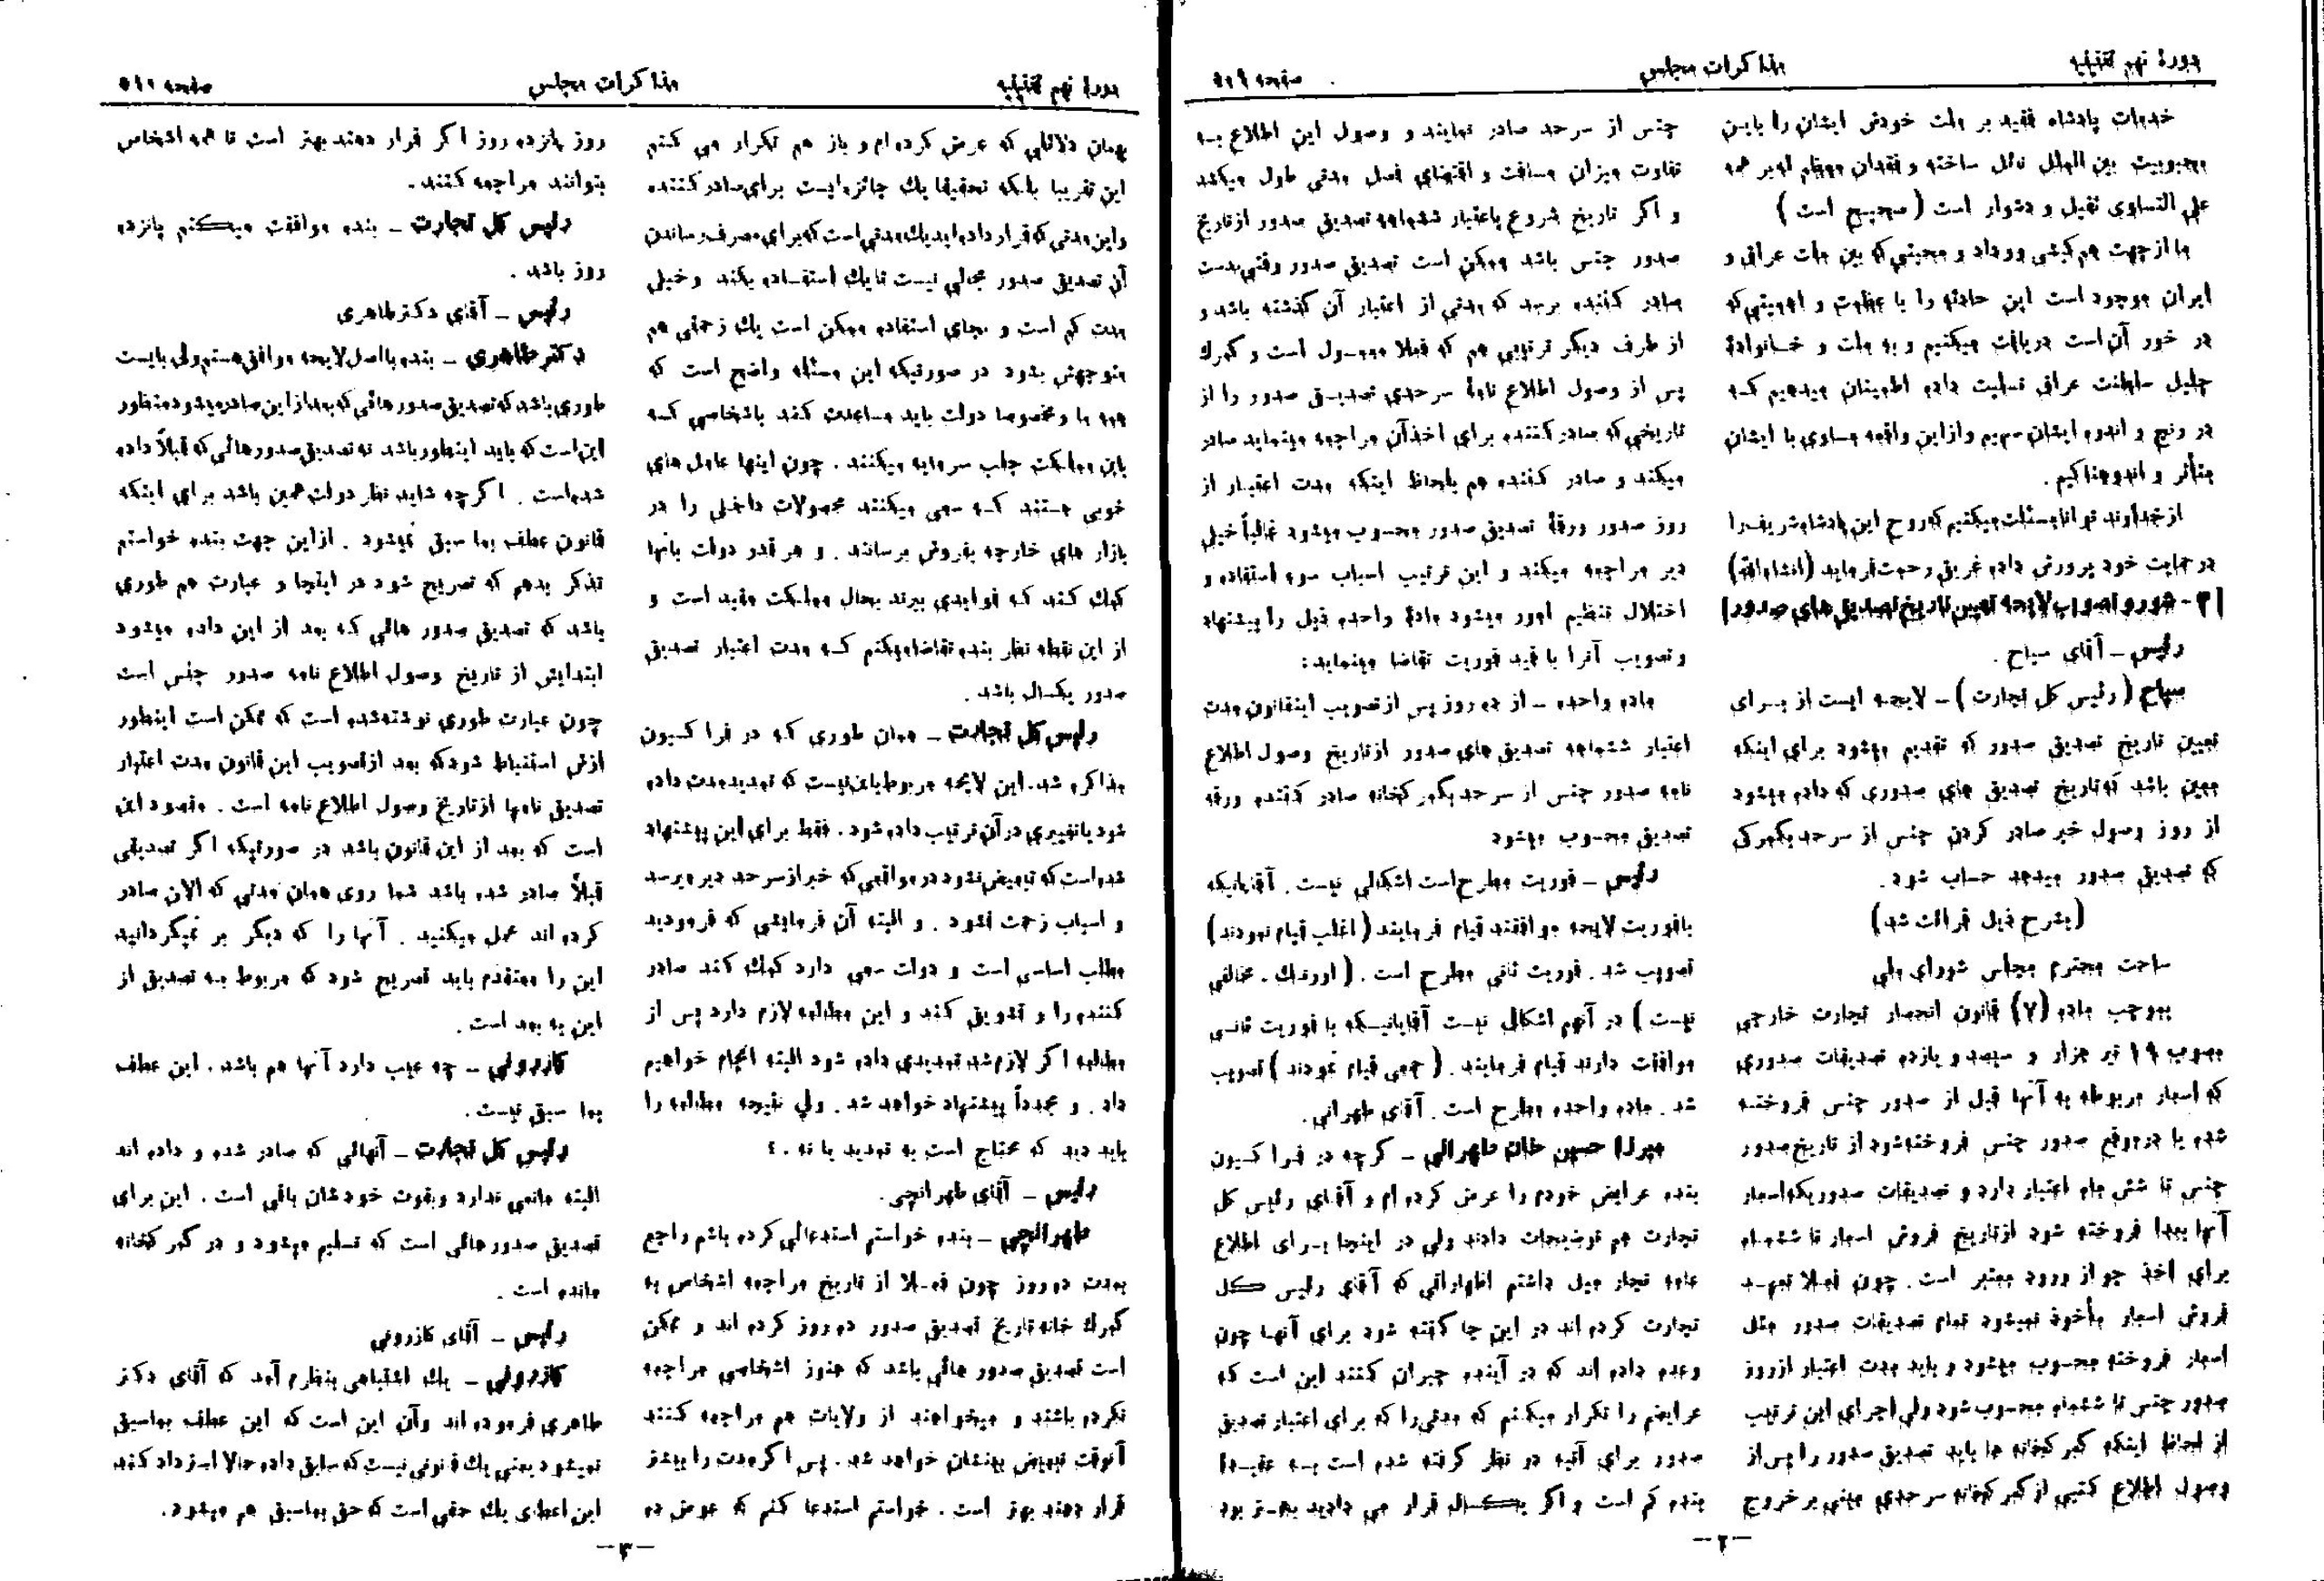 دورهٔ نهم تقنینیه
مذاکرات مجلس
صفحه ۵۰۹
خدمات پادشاه فقید بر ملت خودش ایشان را باین
محبوبیت بین المللی نائل ساخته و فقدان معظم له بر همه
علی التساوی ثقیل و دشوار است (صحیح است)
ما از جهت هم کیشی و وداد و محبتی که بین ملت عراقی و
ایران موجود است این حادثه را با عظمت و اهمیتی که
در خور آن است دریافت میکنیم و به ملت و خانوادهٔ
جلیل سلطنت عراق تسلیت داده اطمینان میدهیم که
در رنج و اندوه ایشان سهیم و از این واقعه مساوی با ایشان
متأثر و اندوهناکیم.
از خداوند توانا مسئلت میکنیم که روح این پادشاه شریف را
در حمایت خود پرورش داده غریق رحمت فرماید (انشاءالله)
[۳- شور و تصویب لایحه تعیین تاریخ تصدیق های صدور]
رئیس - آقای سیاح.
سیاح (رئیس کل تجارت) - لایحه ایست از برای
تعیین تاریخ تصدیق صدور که تقدیم میشود برای اینکه
معین باشد که تاریخ تصدیق های صدوری که داده میشود
از روز وصول خبر صادر کردن جنس از سرحد بگمرکی
که تصدیق صدور میدهد حساب شود.
(بشرح ذیل قرائت شد)
ساحت محترم مجلس شورای ملی
بموجب ماده (۷) قانون انحصار تجارت خارجی
مصوب ۱۹ تیر هزار و سیصد و یازده تصدیقات صدوری
که اسعار مربوطه به آنها قبل از صدور جنس فروخته
شده یا در موقع صدور جنس فروخته شود از تاریخ صدور
جنس تا شش ماه اعتبار دارد و تصدیقات صدوریکه اسعار
آنها بعدا فروخته شود از تاریخ فروش اسعار تا ششماه
برای اخذ جواز ورود معتبر است. چون فعلا تعهد
فروش اسعار مأخوذ نمیشود تمام تصدیقات صدور مثل
اسعار فروخته محسوب میشود و باید مدت اعتبار از روز
صدور جنس تا ششماه محسوب شود ولی اجرای این ترتیب
از لحاظ اینکه گمرکخانه ها باید تصدیق صدور را پس از
وصول اطلاع کتبی از گمرکخانه سرحدی مبنی بر خروج
جنس از سرحد صادر نمایند و وصول این اطلاع به
تفاوت میزان مسافت و اقتضای فصل مدتی طول میکشد
و اگر تاریخ شروع باعتبار ششماهه تصدیق صدور از تاریخ
صدور جنس باشد ممکن است تصدیق صدور وقتی بدست
صادر کننده برسد که مدتی از اعتبار آن گذشته باشد و
از طرف دیگر ترتیبی هم که فعلا معمول است و گمرک
پس از وصول اطلاع نامهٔ سرحدی تصدیق صدور را از
تاریخی که صادر کننده برای اخذ آن مراجعه مینماید صادر
میکند و صادر کننده هم بلحاظ اینکه مدت اعتبار از
روز صدور ورقهٔ تصدیق صدور محسوب میشود غالباً خیلی
دیر مراجعه میکند و این ترتیب اسباب سوء استفاده و
اختلال تنظیم امور میشود مادهٔ واحده ذیل را پیشنهاد
و تصویب آنرا با قید فوریت تقاضا مینماید:
ماده واحده - از ده روز پس از تصویب اینقانون مدت
اعتبار ششماهه تصدیق های صدور از تاریخ وصول اطلاع
نامه صدور جنس از سرحد بگمرکخانه صادر کننده ورقه
تصدیق محسوب میشود
رئیس - فوریت مطرح است اشکالی نیست. آقایانیکه
بافوریت لایحه موافقند قیام فرمایند (اغلب قیام نمودند)
تصویب شد. فوریت ثانی مطرح است. (اورنک. مخالفی
نیست) در آنهم اشکال نیست آقایانیکه با فوریت ثانی
موافقت دارند قیام فرمایند. (جمعی قیام نمودند) تصویب
شد. ماده واحده مطرح است. آقای طهرانی.
میرزا حسین خان طهرانی - گرچه در فراکسیون
بنده عرایض خودم را عرض کرده ام و آقای رئیس کل
تجارت هم توضیحات دادند ولی در اینجا برای اطلاع
عامه تجار میل داشتم اظهاراتی که آقای رئیس کل
تجارت کرده اند در این جا گفته شود برای آنها چون
وعده داده اند که در آینده جبران کنند این است که
عرایضم را تکرار میکنم که مدتی را که برای اعتبار تصدیق
صدور برای آتیه در نظر گرفته شده است به عقیده
بنده کم است و اگر یکسال قرار می دادید بهتر بود
-۲-
دورهٔ نهم تقنینیه
مذاکرات مجلس
صفحه ۵۱۰
بهمان دلائلی که عرض کرده ام و باز هم تکرار می کنم
این تقریبا بلکه تحقیقا یک جائزه ایست برای صادر کننده
و این مدتی که قرار داده اید یک مدتی است که برای مصرف رساندن
آن تصدیق صدور مجالی نیست تا یک استفاده بکند و خیلی
مدت کم است و بجای استفاده ممکن است یک زحمتی هم
متوجهش بشود در صورتیکه این مسئله واضح است که
همه ما و مخصوصا دولت باید مساعدت کند باشخاصی که
باین مملکت جلب سرمایه میکنند. چون اینها عامل های
خوبی هستند که سعی میکنند محصولات داخلی را در
بازار های خارجه بفروش برسانند. و هر قدر دولت بآنها
کمک کند که فوایدی ببرند بحال مملکت مفید است و
از این نقطه نظر بنده تقاضا میکنم که مدت اعتبار تصدیق
صدور یکسال باشد.
رئیس کل تجارت - همان طوری که در فراکسیون
مذاکره شد. این لایحه مربوط باین نیست که تمدید مدت داده
شود یا تغییری در آن ترتیب داده شود. فقط برای این پیشنهاد
شده است که تبعیض نشود در مواقعی که خبر از سرحد دیر میرسد
و اسباب زحمت نشود. و البته آن فرمایشی که فرمودید
مطلب اساسی است و دولت سعی دارد کمک کند صادر
کننده را و تشویق کند و این مطالعه لازم دارد پس از
مطالعه اگر لازم شد تمدیدی داده شود البته انجام خواهیم
داد. و مجدداً پیشنهاد خواهد شد. ولی نتیجه مطالعه را
باید دید که محتاج است به تمدید یا نه.؟
رئیس - آقای طهرانچی.
طهرانچی - بنده خواستم استدعائی کرده باشم راجع
بمدت ده روز چون فعلا از تاریخ مراجعه اشخاص به
گمرک خانه تاریخ تصدیق صدور ده روز کرده اند و ممکن
است تصدیق صدور هائی باشد که هنوز اشخاصی مراجعه
نکرده باشند و میخواهند از ولایات هم مراجعه کنند
آنوقت تبعیض بهشان خواهد شد. پس اگر مدت را بیشتر
قرار دهند بهتر است. خواستم استدعا کنم که عوض ده
روز پانزده روز اگر قرار دهند بهتر است تا همه اشخاص
بتوانند مراجعه کنند.
رئیس کل تجارت - بنده موافقت میکنم پانزده
روز باشد.
رئیس - آقای دکتر طاهری
دکتر طاهری - بنده با اصل لایحه موافق هستم ولی بایست
طوری باشد که تصدیق صدور هائی که بعد از این صادر میشود منظور
این است که باید اینطور باشد نه تصدیق صدور هائی که قبلاً داده
شده است. اگرچه شاید نظر دولت همین باشد برای اینکه
قانون عطف بما سبق نمیشود. از این جهت بنده خواستم
تذکر بدهم که تصریح شود در اینجا و عبارت هم طوری
باشد که تصدیق صدور هائی که بعد از این داده میشود
ابتدایش از تاریخ وصول اطلاع نامه صدور جنس است
چون عبارت طوری نوشته شده است که ممکن است اینطور
ازش استنباط شود که بعد از تصویب این قانون مدت اعتبار
تصدیق نامها از تاریخ وصول اطلاع نامه است. مقصود این
است که بعد از این قانون باشد در صورتیکه اگر تصدیقی
قبلاً صادر شده باشد شما روی همان مدتی که الان صادر
کرده اند عمل میکنید. آنها را که دیگر بر نمیگردانید
این را معتقدم باید تصریح شود که مربوط به تصدیق از
این به بعد است.
کازرونی - چه عیب دارد آنها هم باشد. این عطف
بما سبق نیست.
رئیس کل تجارت - آنهائی که صادر شده و داده اند
البته مانعی ندارد وبقوت خودشان باقی است. این برای
تصدیق صدورهائی است که تسلیم میشود و در گمرکخانه
مانده است.
رئیس - آقای کازرونی
کازرونی - یک اشتباهی بنظرم آمد که آقای دکتر
طاهری فرموده اند وآن این است که این عطف بماسبق
نمیشود یعنی یک قانونی نیست که سابق داده حالا استرداد کند
این اعطای یک حقی است که حق بماسبق هم میشود.
-۳-